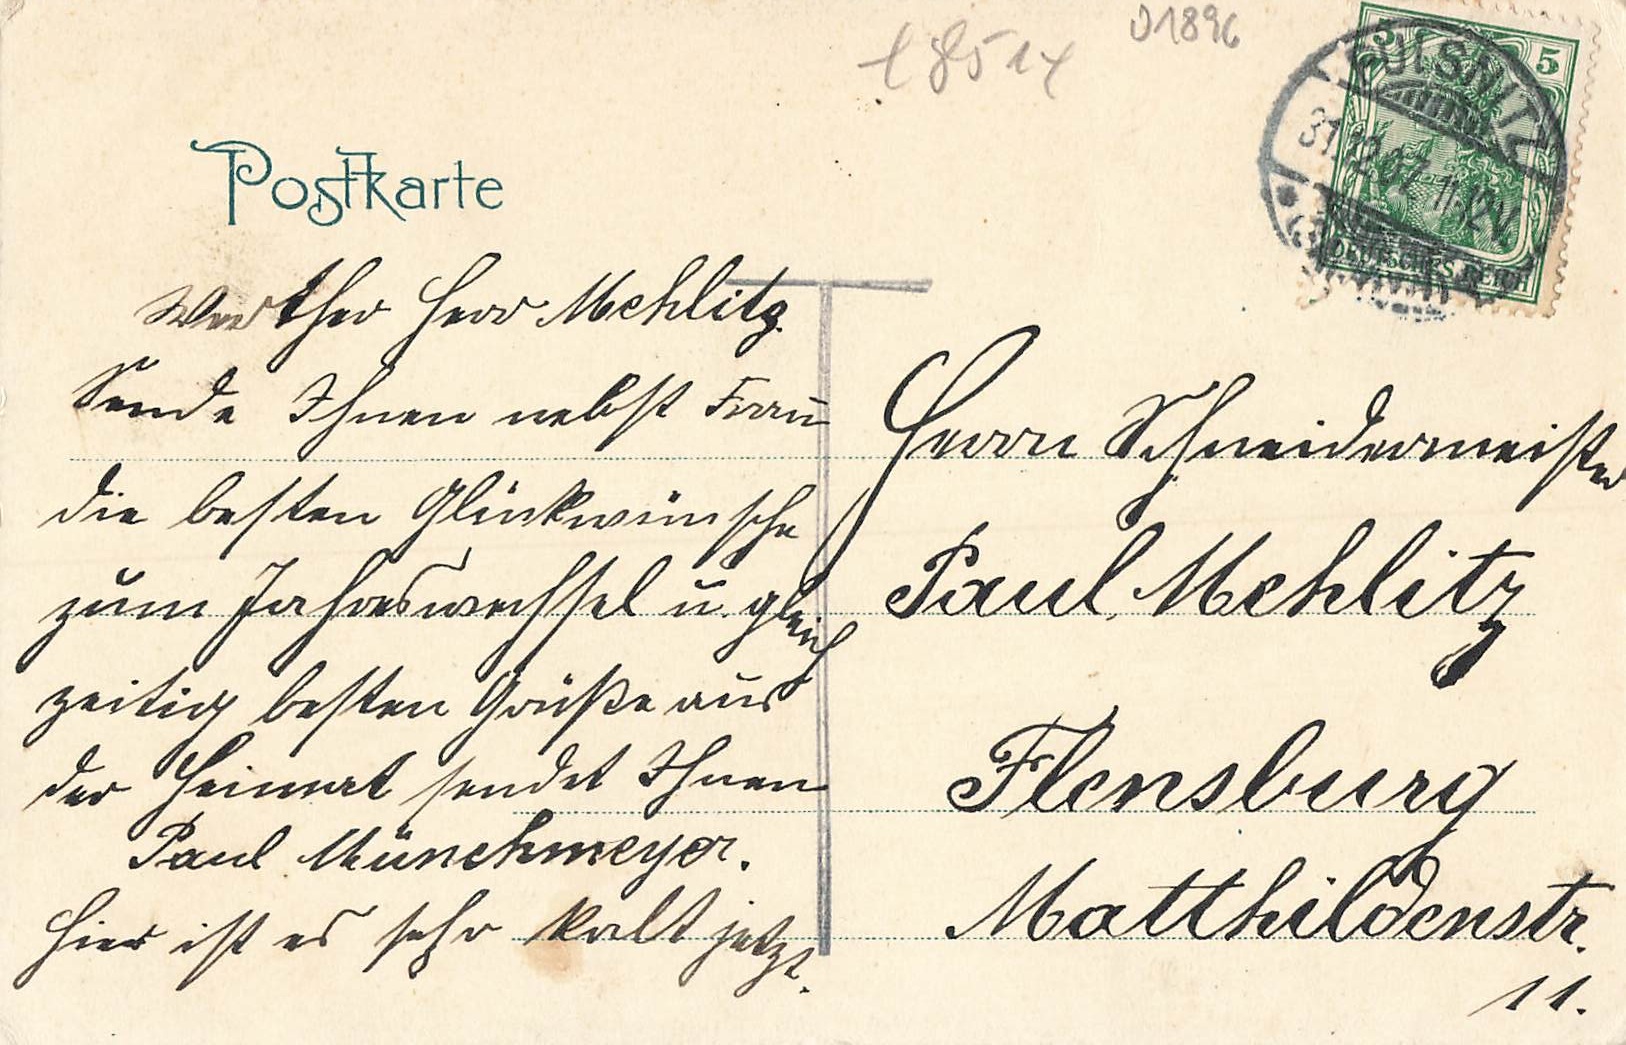 D1896
Postkarte
PULSNITZ
31.12.07. 11-12V
5
DEUTSCHES REICH
Werther Herr Mehlitz.
Sende Ihnen nebst Frau
die besten Glückwünsche
zum Jahreswechsel u. gleich
zeitig besten Grüße aus
der Heimat sendet Ihnen
Paul Münchmeyer.
Hier ist es sehr kalt jetzt.
Herrn Schneidermeister
Paul Mehlitz
Flensburg
Matthildenstr.
11.